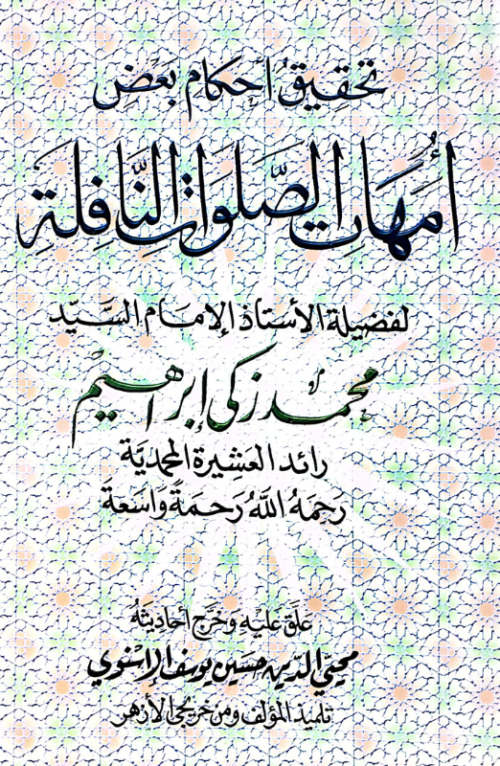 تحقيق أحكام بعض
أمهات الصلوات النافلة
لفضيلة الأستاذ الإمام السيد
محمد زكى إبراهيم
رائد العشيرة المحمدية
رحمه الله رحمة واسعة
علق عليه وخرج أحاديثه
محيي الدين حسين يوسف الإسنوي
تلميذ المؤلف ومن خريجى الأزهر